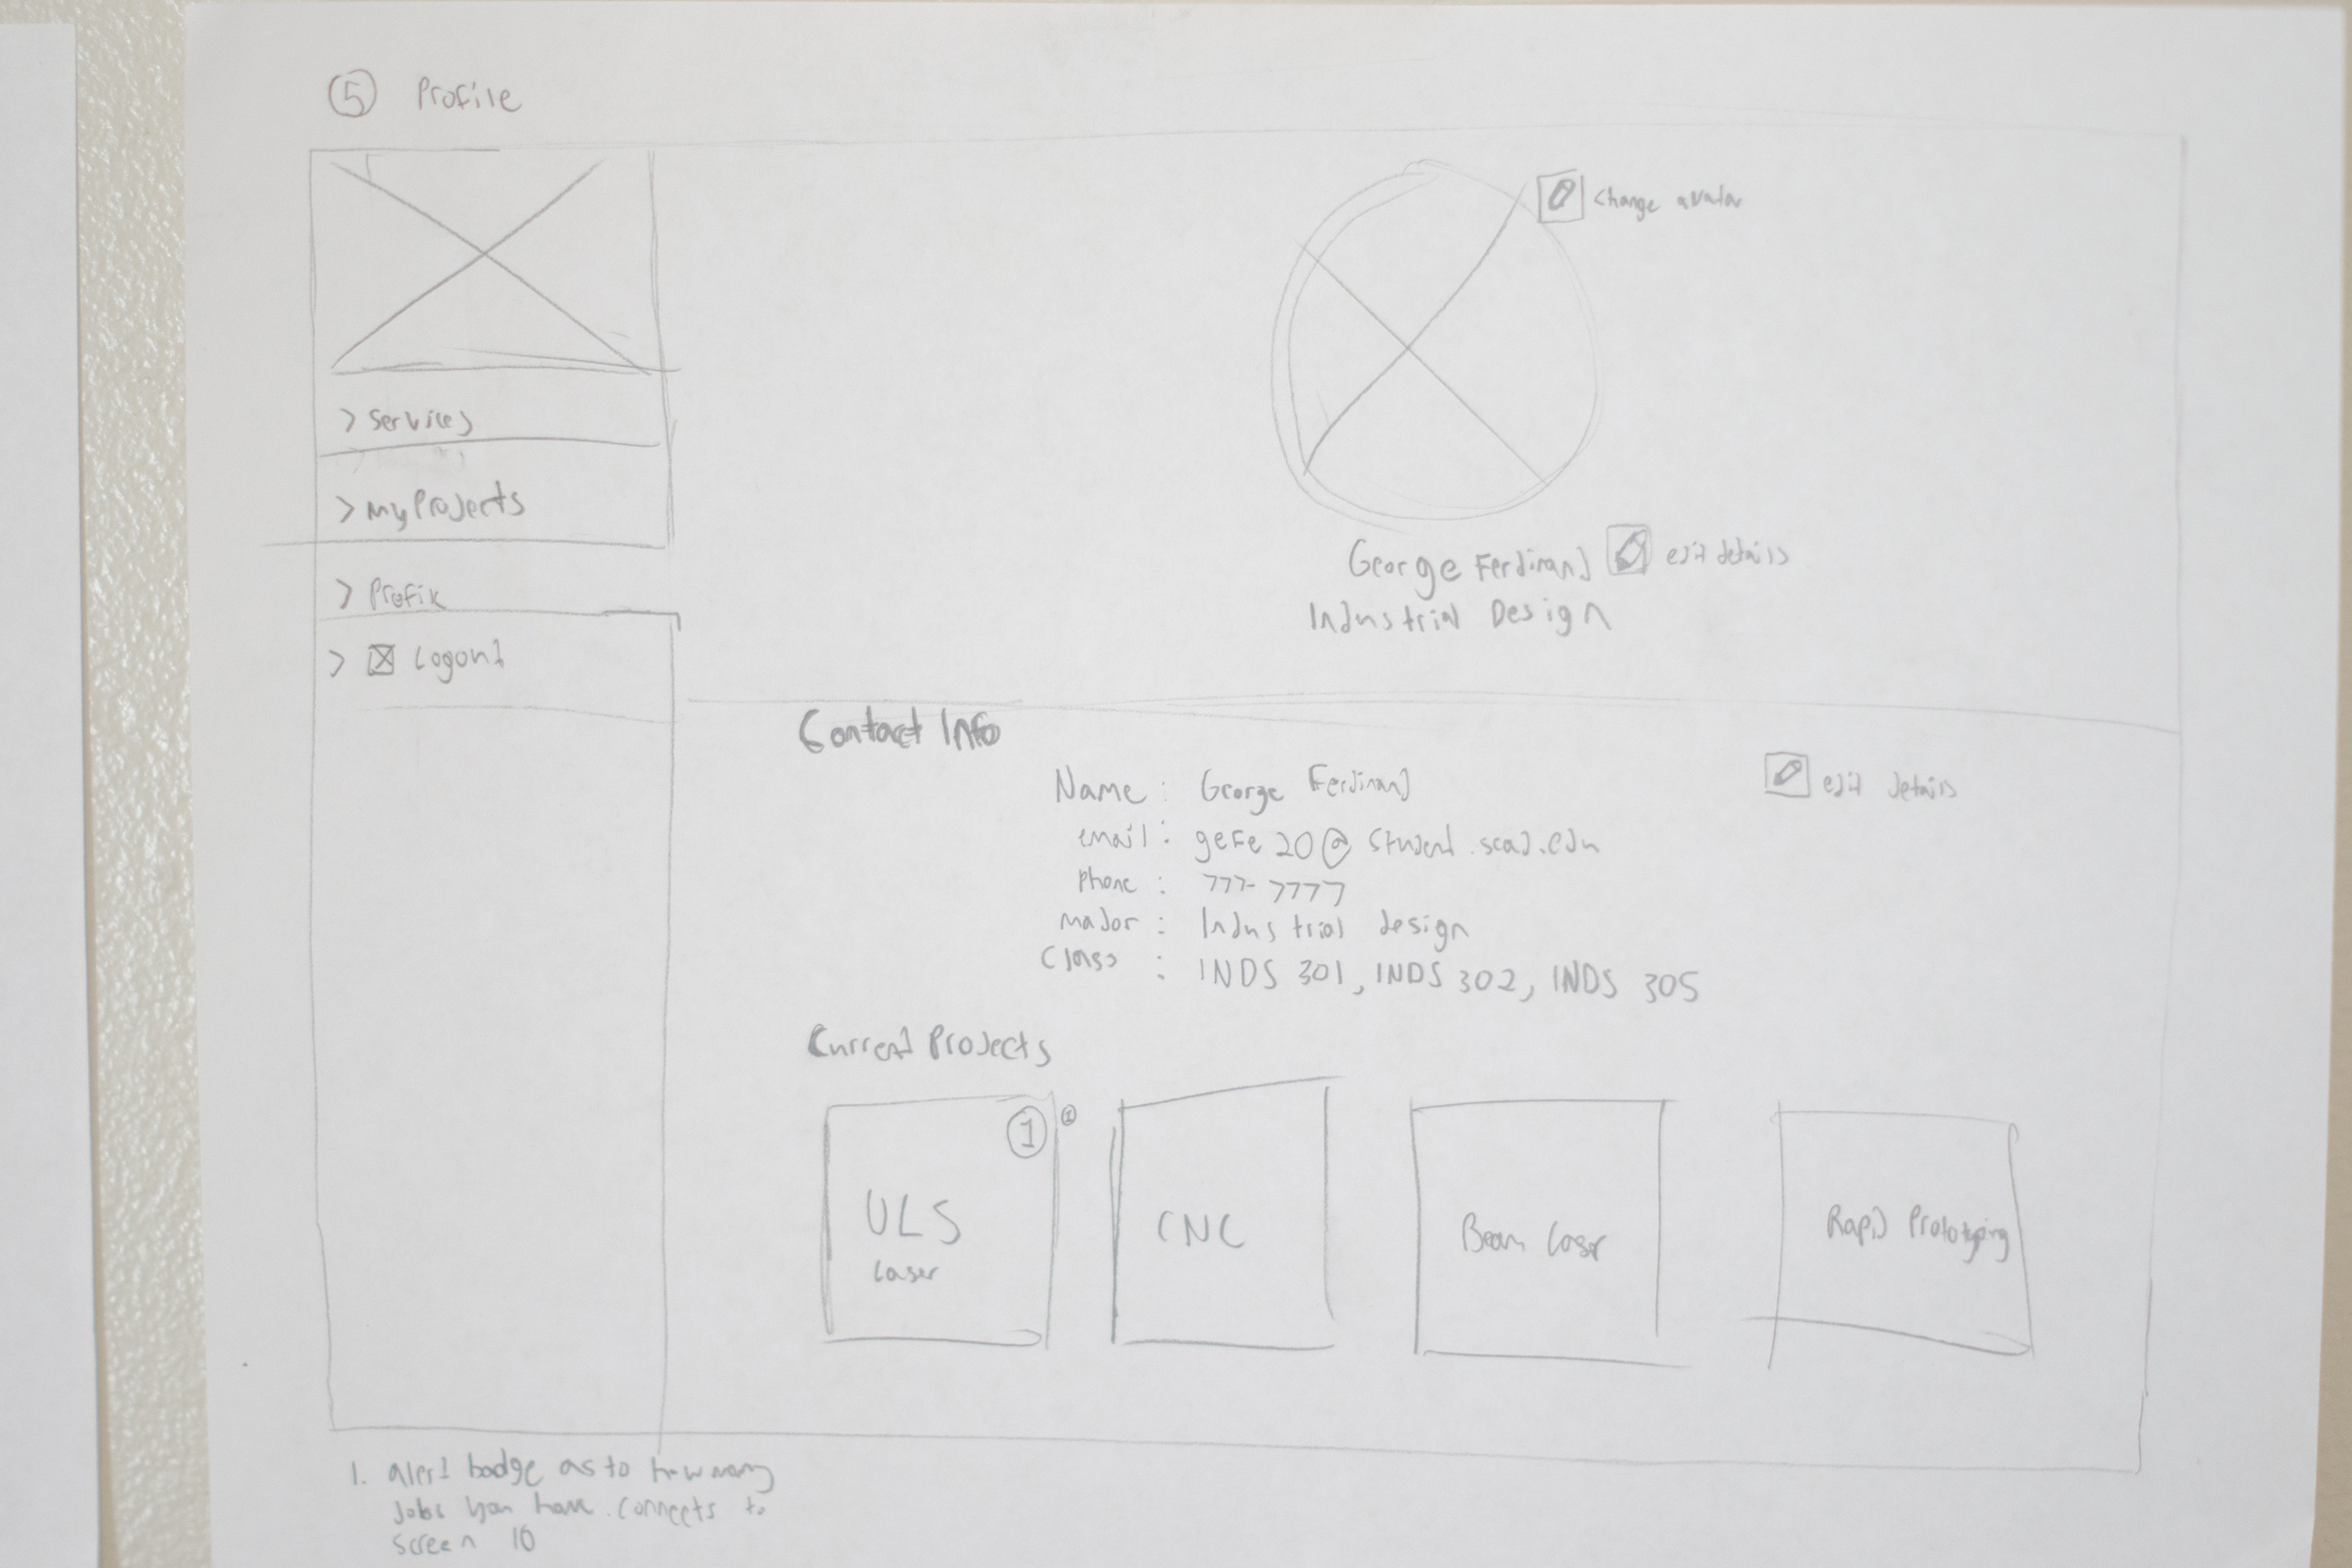 5 Profile
change avatar
> Services
> My Projects
> Profile
> Logout
George Ferdinand
edit details
Industrial Design
Contact Info
edit details
Name : George Ferdinand
email : gefe20@student.scad.edu
phone : 777-7777
major : Industrial design
class : INDS 301, INDS 302, INDS 305
Current Projects
1
1
ULS
Laser
CNC
Beam Laser
Rapid Prototyping
1. alert badge as to how many
jobs you have. connects to
screen 10